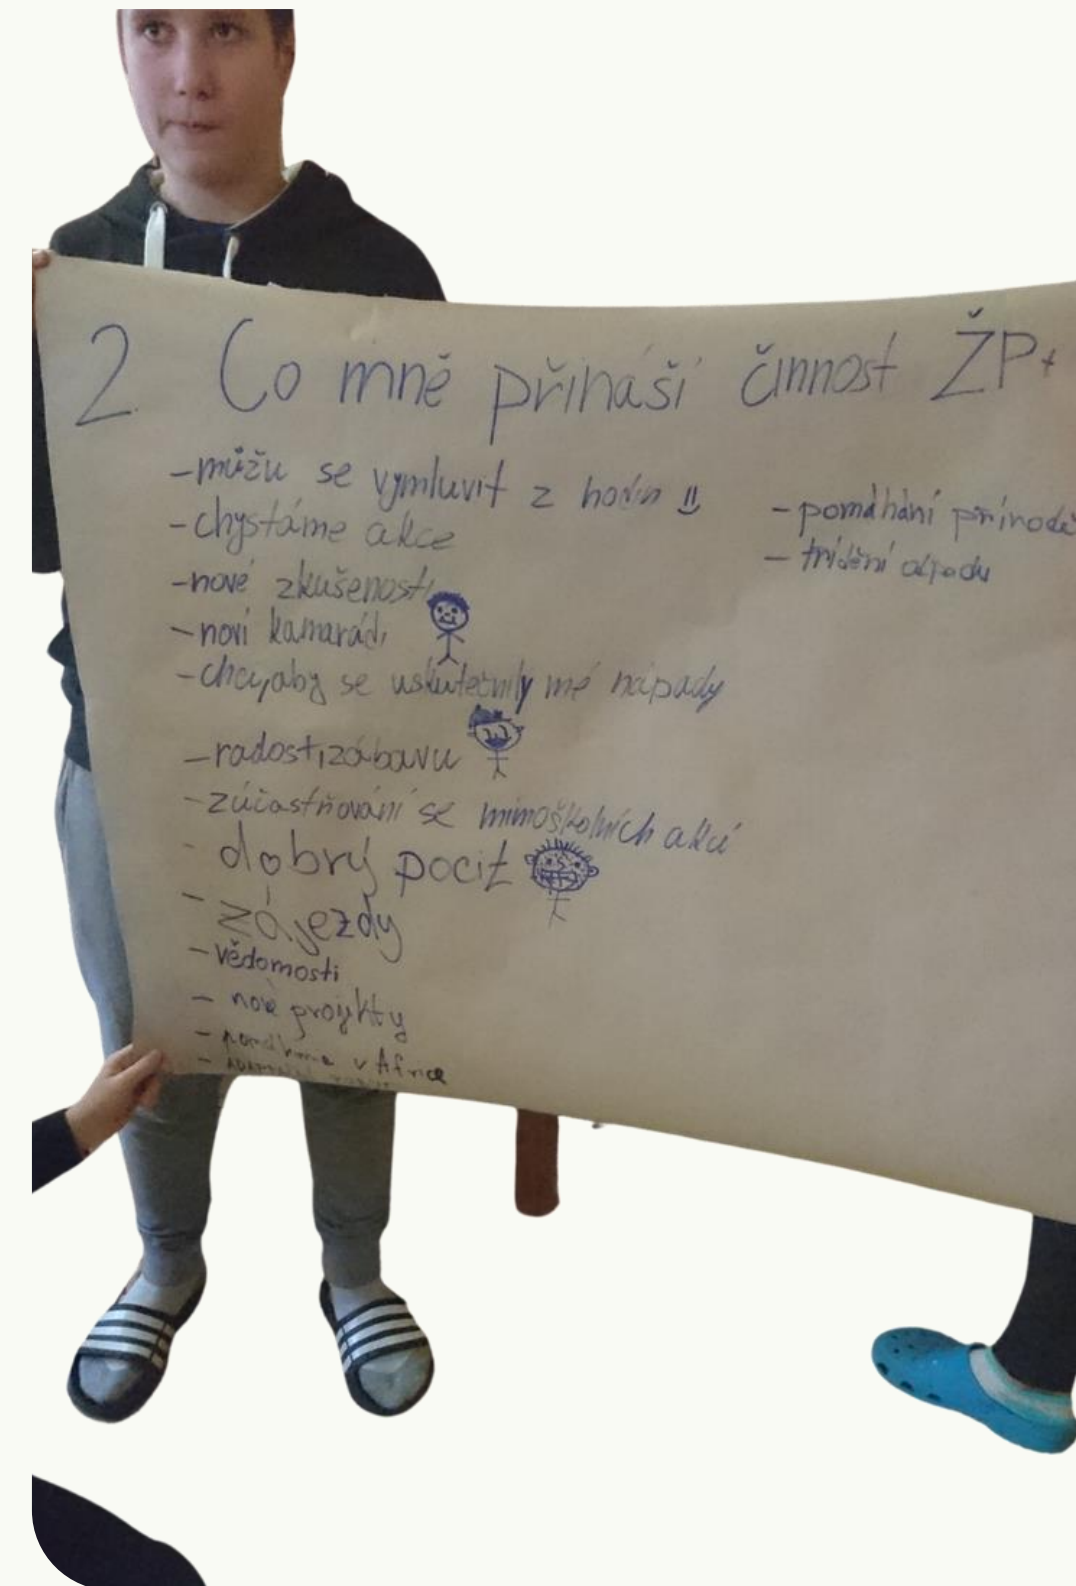 2 Co mně přináší činnost ŽP+
- můžu se vymluvit z hodin
- chystáme akce
- nové zkušenosti
- noví kamarádi
- chci, aby se uskutečnily mé nápady
- radost, zábavu
- zúčastňování se mimoškolních akcí
- dobrý pocit
- zájezdy
- vědomosti
- nové projekty
- v Africe
- pomáhání přírodě
- třídění odpadu